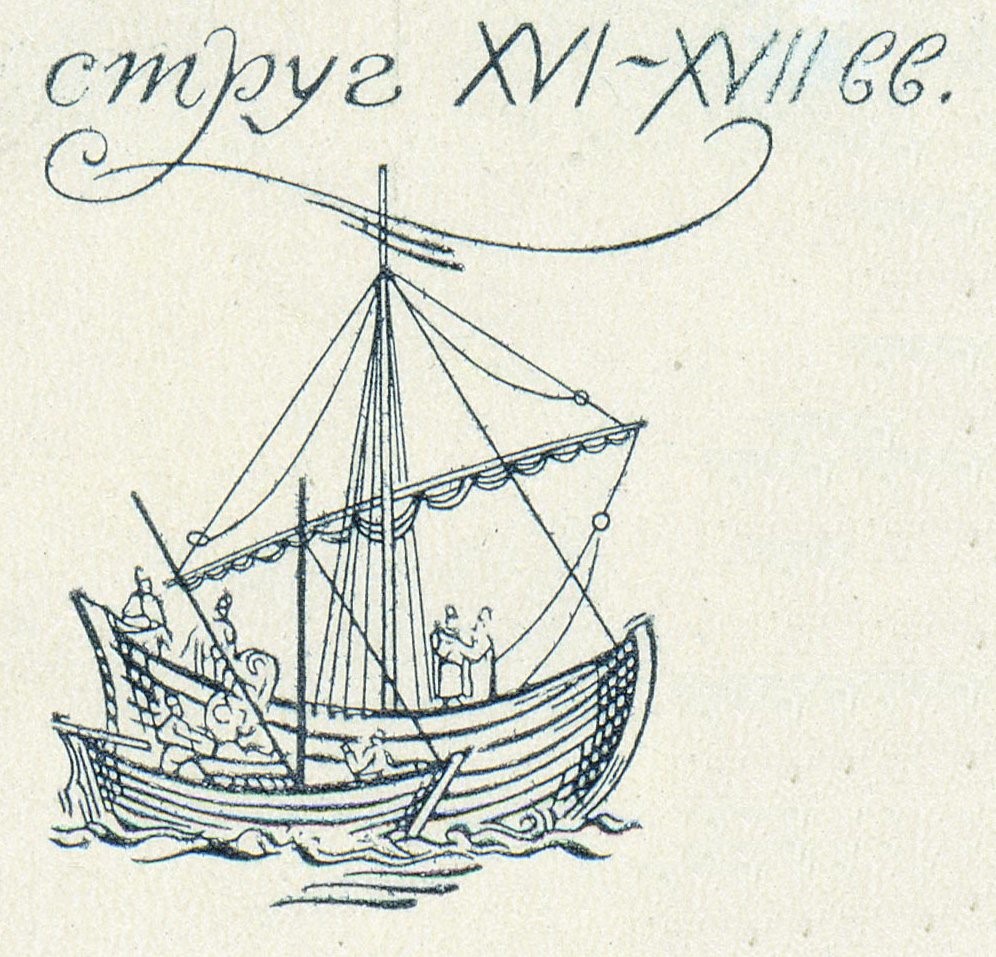 струг XVI-XVII вв.